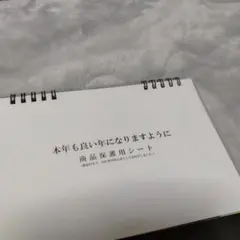 本年も良い年になりますように
商品保護用シート